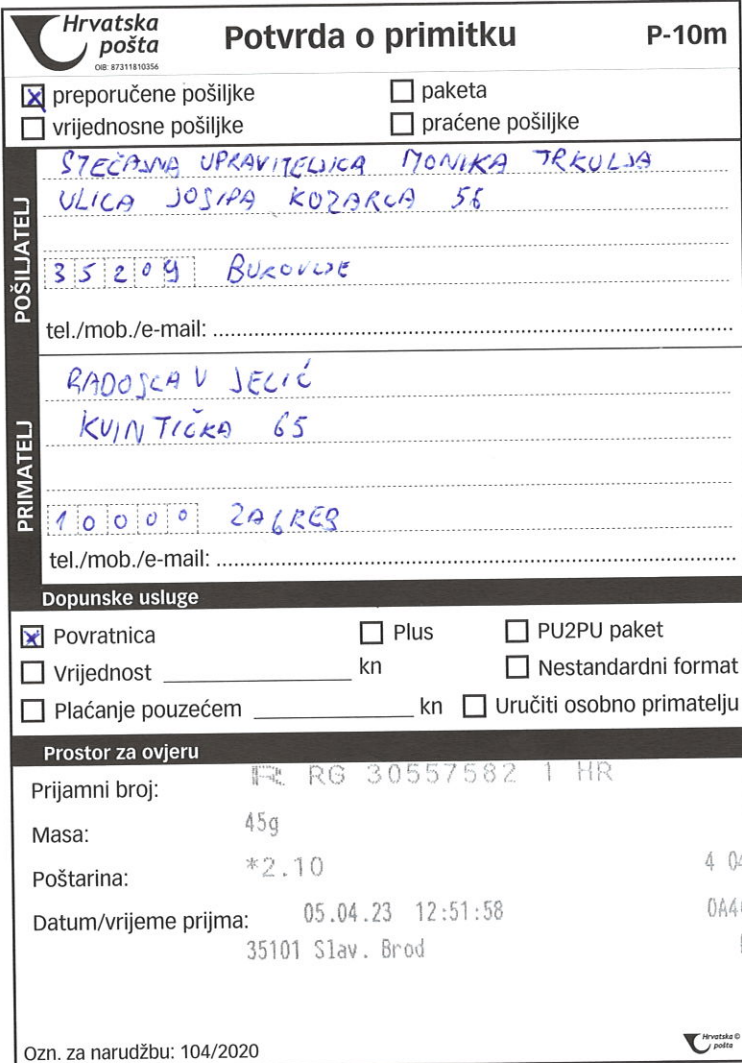 Hrvatska pošta
OIB: 87311810356
Potvrda o primitku
P-10m
preporučene pošiljke
paketa
vrijednosne pošiljke
praćene pošiljke
POŠILJATELJ
STEČAJNA UPRAVITELJICA MONIKA TRKULJA
ULICA JOSIPA KOZARCA 56
35209 BUKOVLJE
tel./mob./e-mail:
PRIMATELJ
RADOSLAV JELIĆ
KVINTIČKA 65
10000 ZAGREB
tel./mob./e-mail:
Dopunske usluge
Povratnica
Plus
PU2PU paket
Vrijednost kn
Nestandardni format
Plaćanje pouzećem kn
Uručiti osobno primatelju
Prostor za ovjeru
Prijamni broj: R RG 30557582 1 HR
Masa: 45g
Poštarina: *2.10 4 04
Datum/vrijeme prijma: 05.04.23 12:51:58
35101 Slav. Brod
Ozn. za narudžbu: 104/2020
Hrvatska pošta